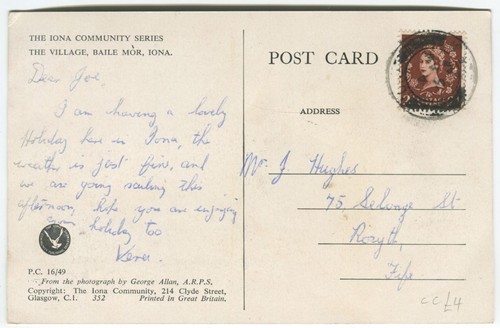 THE IONA COMMUNITY SERIES
THE VILLAGE, BAILE MÒR, IONA.
POST CARD
ADDRESS
Dear Joe,
I am having a lovely
Holiday here in Iona, the
weather is just fine, and
we are going sailing this
afternoon, hope you are enjoying
your holiday too
Mr. J Hughes
75 Selvage St
Rosyth
Fife
P.C. 16/49
From the photograph by George Allan, A.R.P.S.
Copyright: The Iona Community, 214 Clyde Street,
Glasgow, C.1. 352 Printed in Great Britain.
CC £4